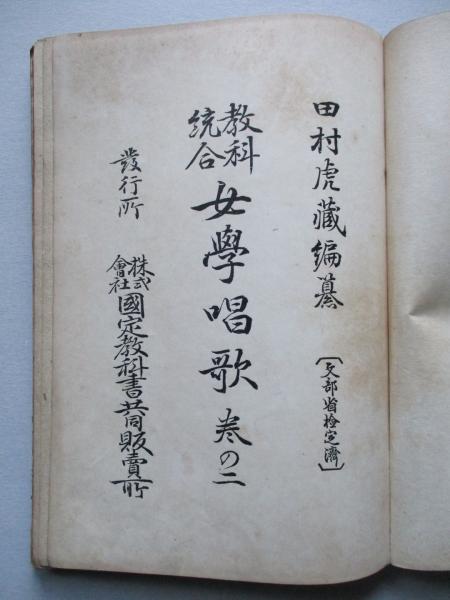 田村虎藏編纂
〔文部省檢定濟〕
教科
統合
女學唱歌 巻の二
發行所
株式
會社
國定教科書共同販賣所